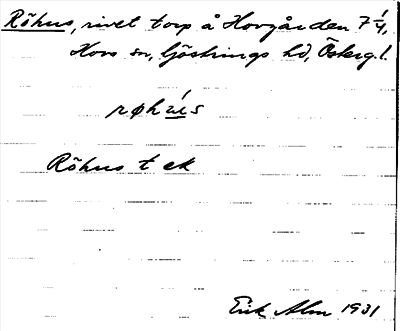 Röhus, rivet torp å Hovgården 7 1/4,
Hovs sn, Göstrings hd, Österg. l.
røhu̲s
Röhus t ek
Erik Alm 1931